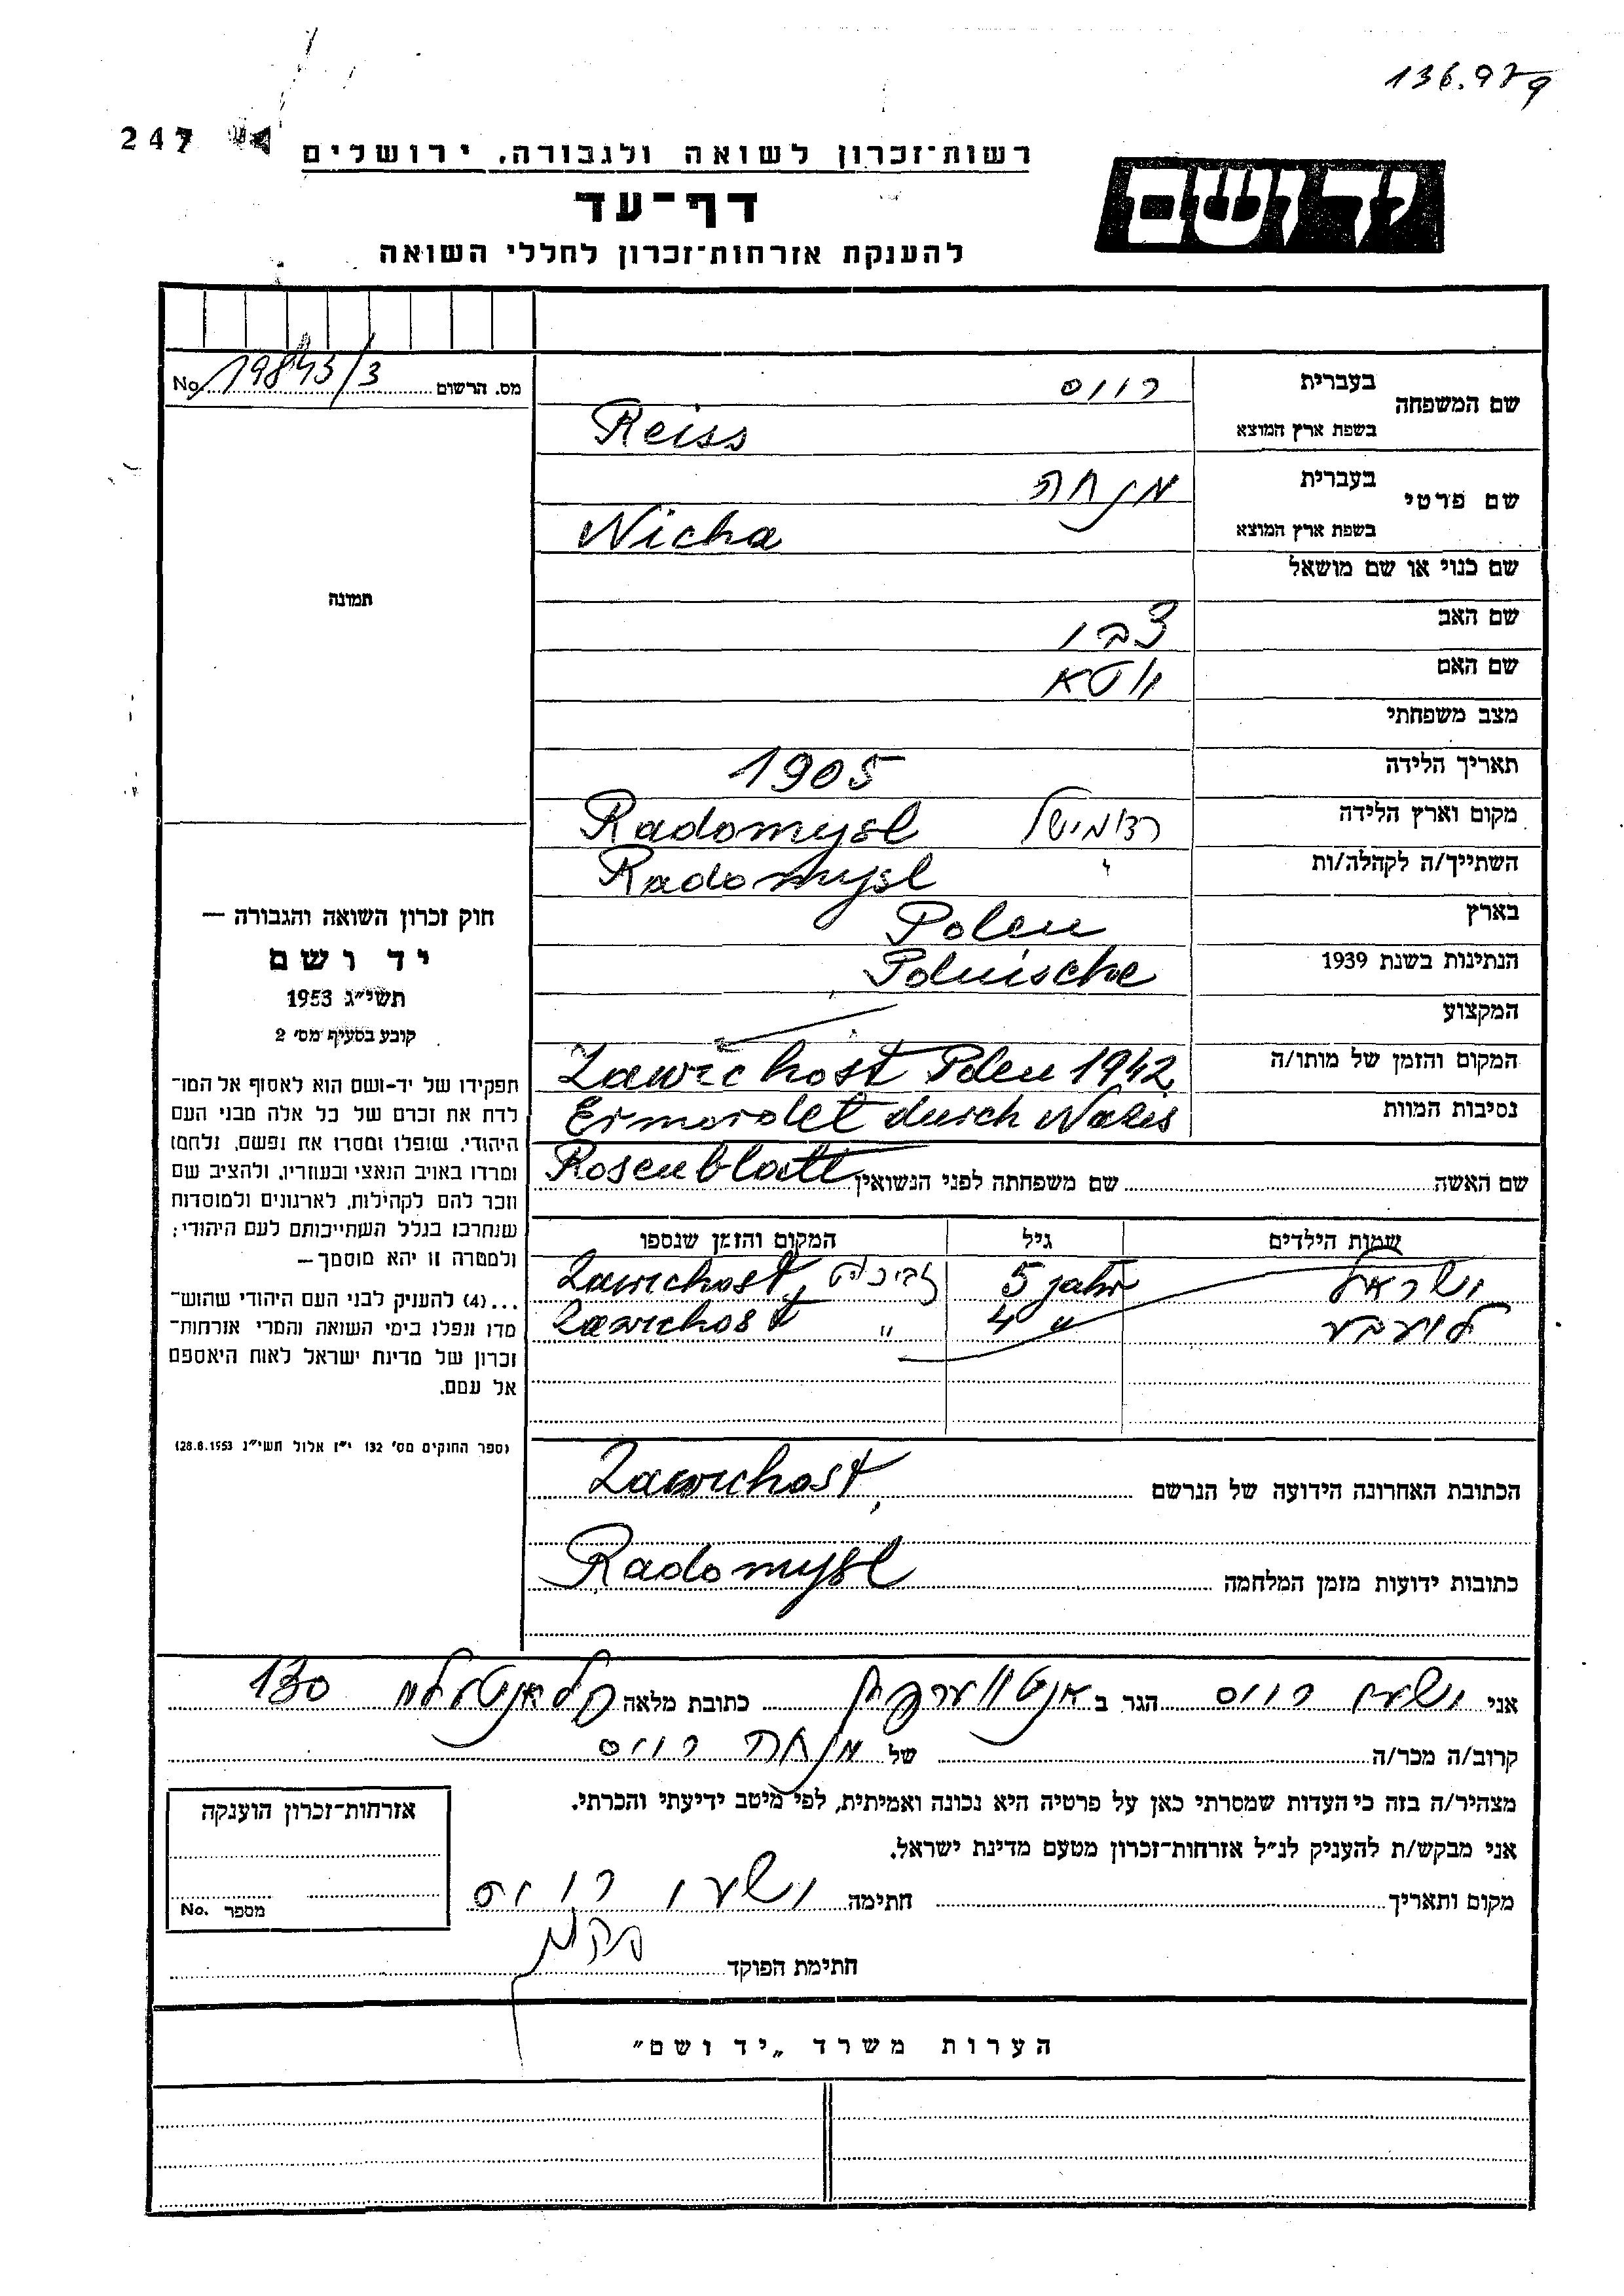 136.979
247
רשות־זכרון לשואה ולגבורה, ירושלים
יד ושם
דף־עד
להענקת אזרחות־זכרון לחללי השואה
מס. הרשום 19843/3 No
שם המשפחה בעברית רייס
בשפת ארץ המוצא Reiss
שם פרטי בעברית מנחה
בשפת ארץ המוצא Nicha
שם כנוי או שם מושאל
שם האב צבי
שם האם יטא
מצב משפחתי
תאריך הלידה 1905
מקום וארץ הלידה רדומישל Radomysl
השתייך/ה לקהלה/ות " Radomysl
בארץ Polen
הנתינות בשנת 1939 Polnische
המקצוע
המקום והזמן של מותו/ה Zawichost Polen 1942
נסיבות המוות Ermordet durch Nazis
שם האשה שם משפחתה לפני הנשואין Rosenblatt
שמות הילדים גיל המקום והזמן שנספו
ישראל 5 jahr Zawichost,
4 " " Zawichost
הכתובת האחרונה הידועה של הנרשם Zawichost,
כתובות ידועות מזמן המלחמה Radomysl
תמונה
חוק זכרון השואה והגבורה —
יד ושם
תשי״ג 1953
קובע בסעיף מס׳ 2
תפקידו של יד־ושם הוא לאסוף אל המו־
לדת את זכרם של כל אלה מבני העם
היהודי, שנפלו ומסרו את נפשם, נלחמו
ומרדו באויב הנאצי ובעוזריו, ולהציב שם
וזכר להם לקהילות, לארגונים ולמוסדות
שנחרבו בגלל השתייכותם לעם היהודי;
ולמטרה זו יהא מוסמך —
...(4) להעניק לבני העם היהודי שהוש־
מדו ונפלו בימי השואה והמרי אזרחות־
זכרון של מדינת ישראל לאות היאספם
אל עמם.
(ספר החוקים מס׳ 132 י״ז אלול תשי״ג 28.8.1953)
אני ישעי רייס הגר ב אנטווערפן כתובת מלאה 130
קרוב/ה מכר/ה של מנחה רייס
מצהיר/ה בזה כי העדות שמסרתי כאן על פרטיה היא נכונה ואמיתית, לפי מיטב ידיעתי והכרתי.
אני מבקש/ת להעניק לנ״ל אזרחות־זכרון מטעם מדינת ישראל.
מקום ותאריך חתימה ישעי רייס
חתימת הפוקד
אזרחות־זכרון הוענקה
מספר No.
הערות משרד „יד ושם"